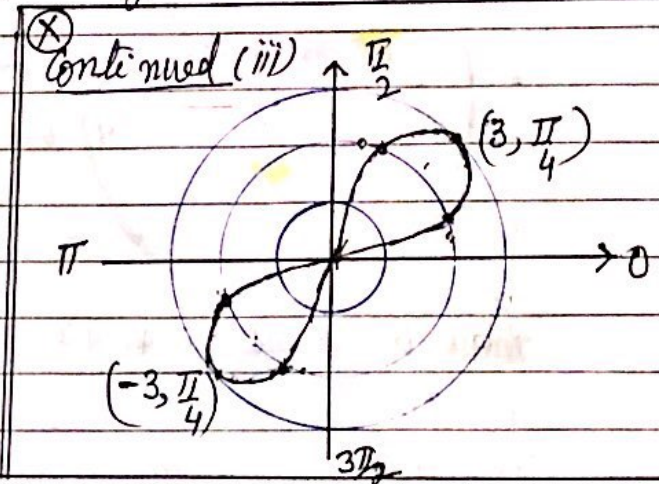 X
Continued (iii)
π/2
(3, π/4)
π
0
(-3, π/4)
3π/2